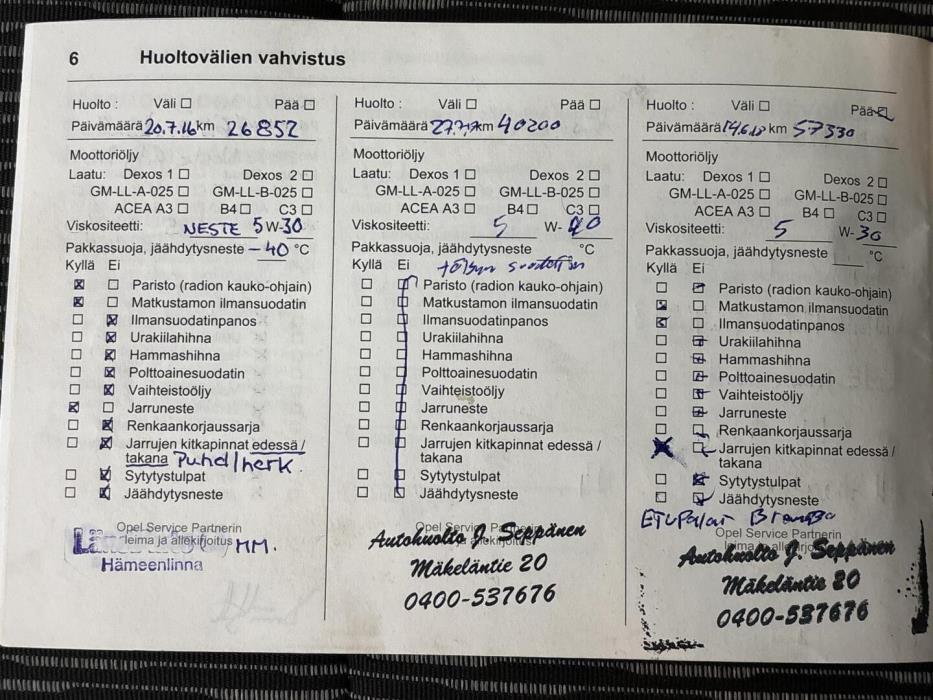 6 Huoltovälien vahvistus
Huolto : Väli Pää
Päivämäärä 20.7.16 km 26852
Moottoriöljy
Laatu: Dexos 1 Dexos 2
GM-LL-A-025 GM-LL-B-025
ACEA A3 B4 C3
Viskositeetti: NESTE 5 W-30
Pakkassuoja, jäähdytysneste -40 °C
Kyllä Ei
Paristo (radion kauko-ohjain)
Matkustamon ilmansuodatin
Ilmansuodatinpanos
Urakiilahihna
Hammashihna
Polttoainesuodatin
Vaihteistoöljy
Jarruneste
Renkaankorjaussarja
Jarrujen kitkapinnat edessä /
takana Puhd/herk.
Sytytystulpat
Jäähdytysneste
Opel Service Partnerin
leima ja allekirjoitus MM.
Hämeenlinna
Huolto : Väli Pää
Päivämäärä km 40200
Moottoriöljy
Laatu: Dexos 1 Dexos 2
GM-LL-A-025 GM-LL-B-025
ACEA A3 B4 C3
Viskositeetti: 5 W- 40
Pakkassuoja, jäähdytysneste °C
Kyllä Ei
Paristo (radion kauko-ohjain)
Matkustamon ilmansuodatin
Ilmansuodatinpanos
Urakiilahihna
Hammashihna
Polttoainesuodatin
Vaihteistoöljy
Jarruneste
Renkaankorjaussarja
Jarrujen kitkapinnat edessä /
takana
Sytytystulpat
Jäähdytysneste
Opel Service Partnerin
Autohuolto J. Seppänen
Mäkeläntie 20
0400-537676
Huolto : Väli Pää
Päivämäärä 14.6.18 km 57330
Moottoriöljy
Laatu: Dexos 1 Dexos 2
GM-LL-A-025 GM-LL-B-025
ACEA A3 B4 C3
Viskositeetti: 5 W- 30
Pakkassuoja, jäähdytysneste °C
Kyllä Ei
Paristo (radion kauko-ohjain)
Matkustamon ilmansuodatin
Ilmansuodatinpanos
Urakiilahihna
Hammashihna
Polttoainesuodatin
Vaihteistoöljy
Jarruneste
Renkaankorjaussarja
Jarrujen kitkapinnat edessä /
takana
Sytytystulpat
Jäähdytysneste
Opel Service Partnerin
Autohuolto J. Seppänen
Mäkeläntie 20
0400-537676